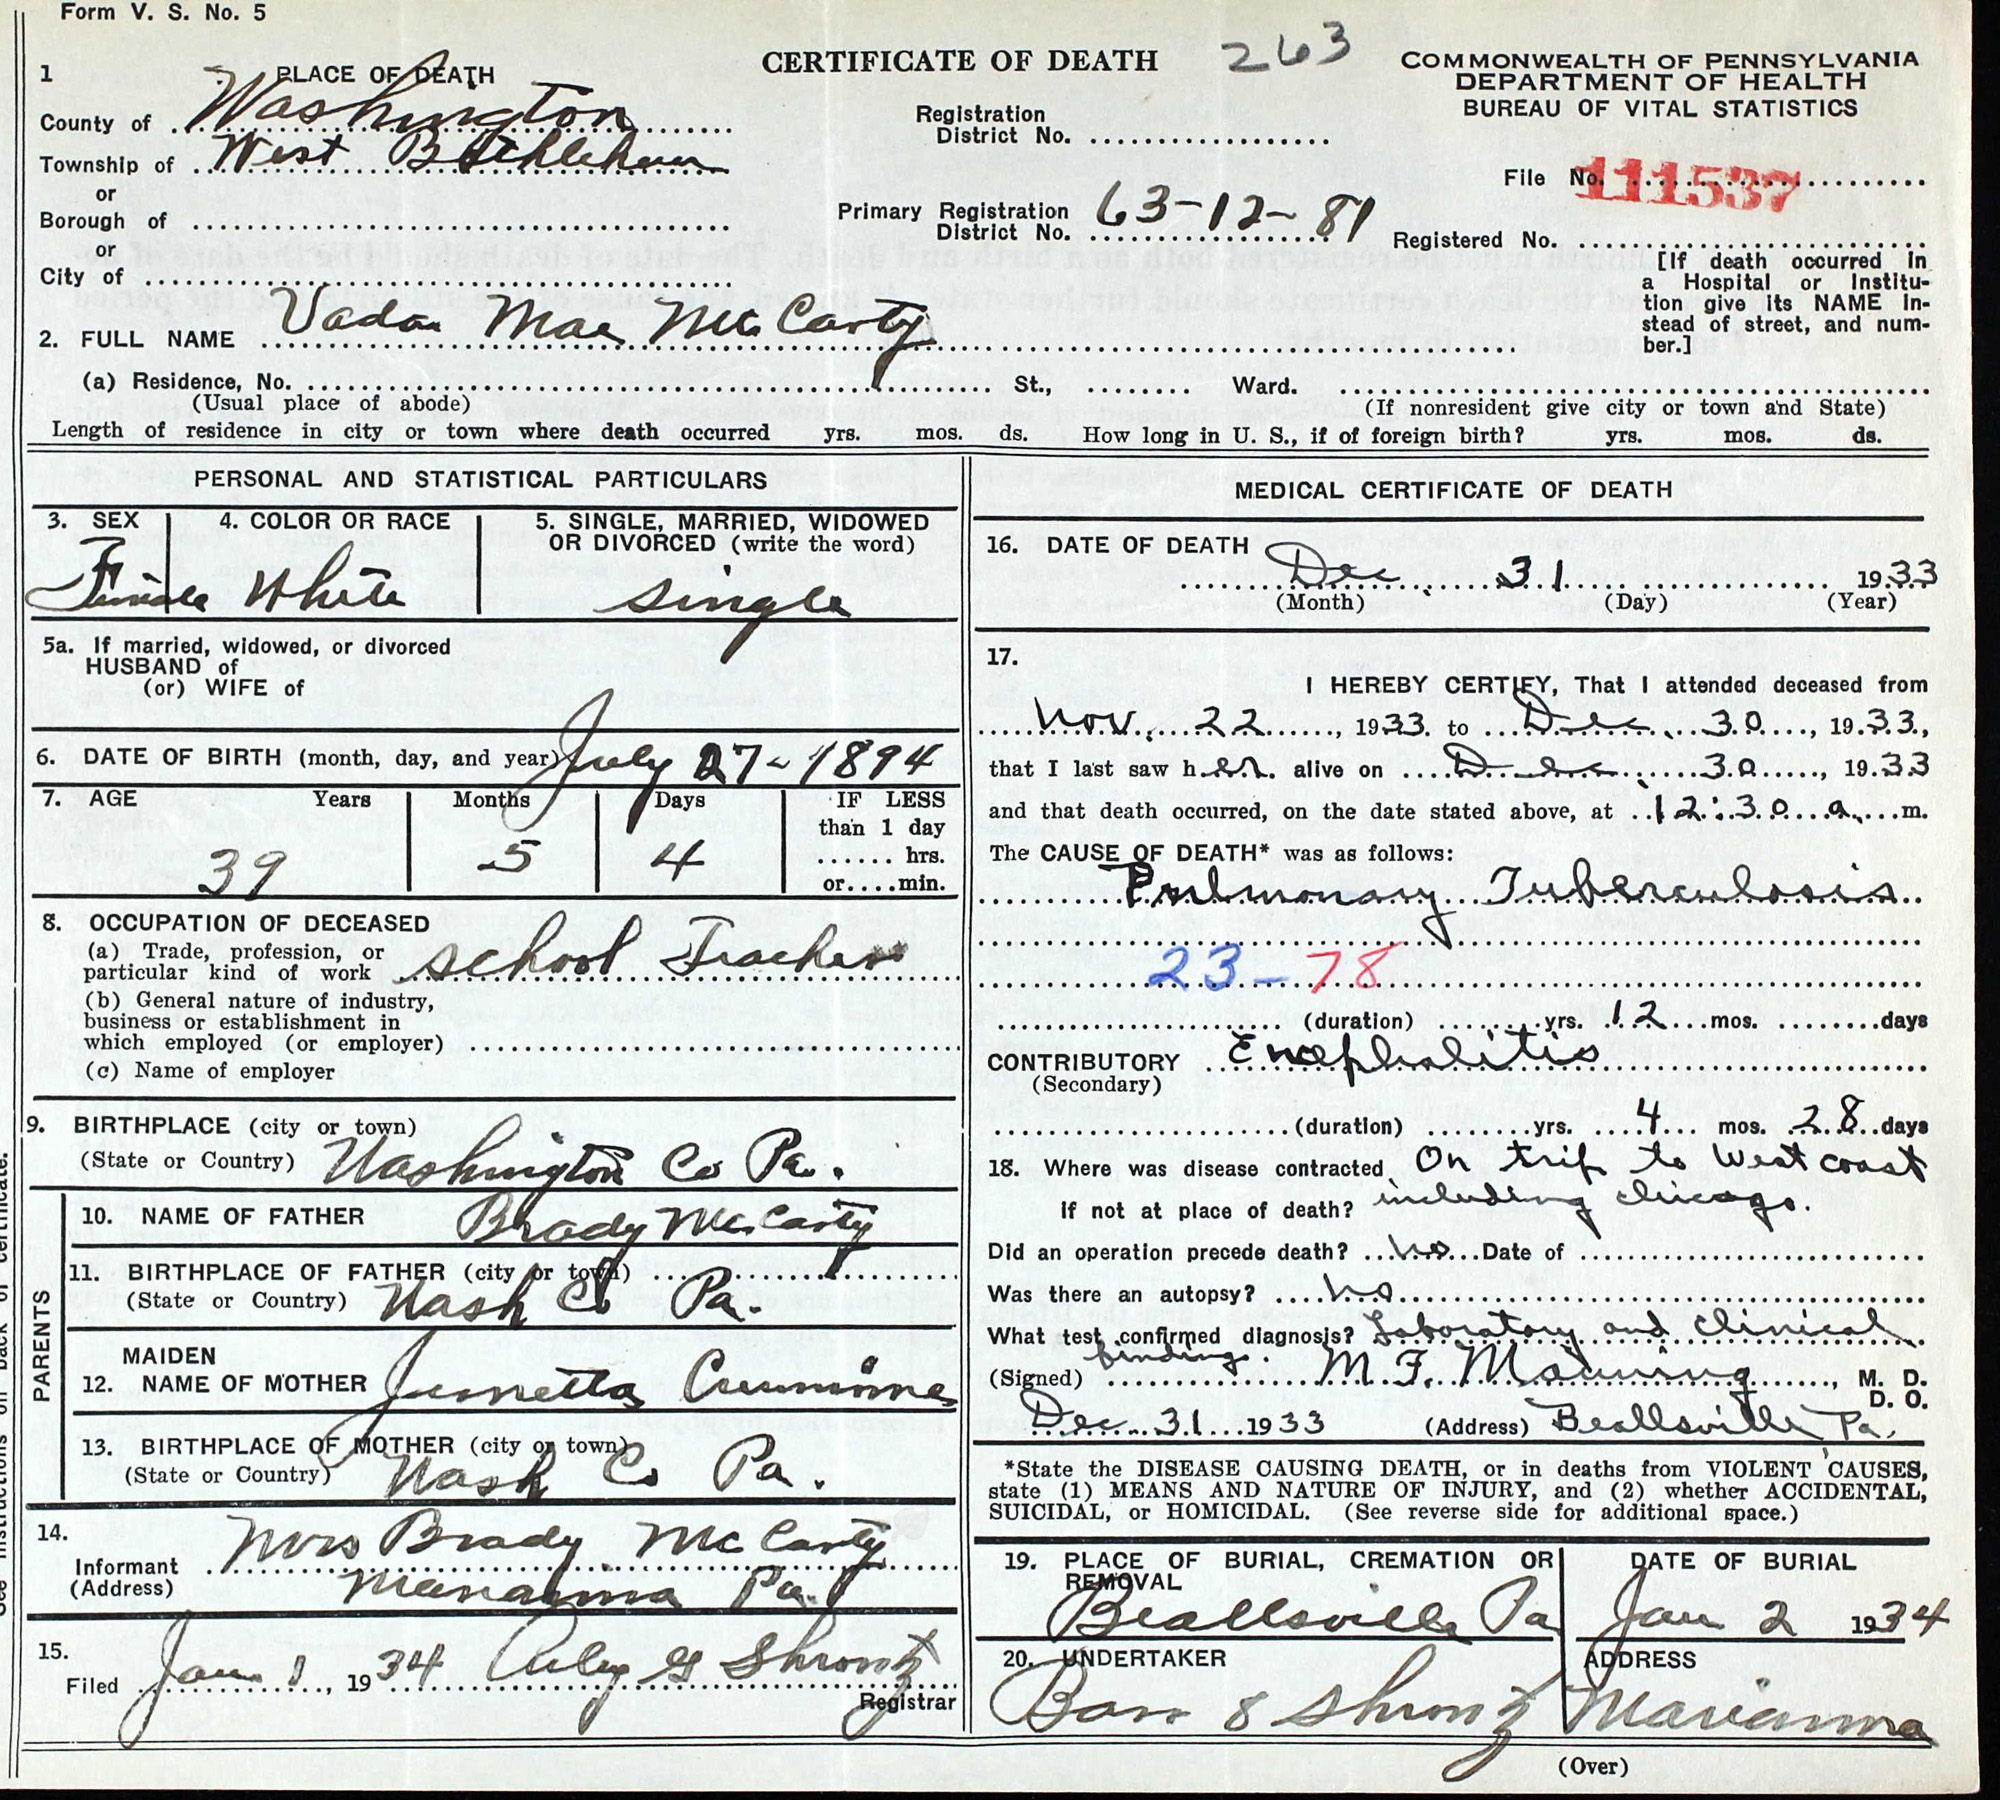 Form V. S. No. 5
CERTIFICATE OF DEATH 263
COMMONWEALTH OF PENNSYLVANIA
DEPARTMENT OF HEALTH
BUREAU OF VITAL STATISTICS
1 PLACE OF DEATH
County of Washington
Township of West Bethlehem
or
Borough of
or
City of
Registration
District No.
Primary Registration
District No. 63-12-81
File No. 111537
Registered No.
[If death occurred in
a Hospital or Institu-
tion give its NAME in-
stead of street, and num-
ber.]
2. FULL NAME Vada Mae McCarty
(a) Residence, No. St., Ward.
(Usual place of abode) (If nonresident give city or town and State)
Length of residence in city or town where death occurred yrs. mos. ds. How long in U. S., if of foreign birth? yrs. mos. ds.
PERSONAL AND STATISTICAL PARTICULARS
3. SEX 4. COLOR OR RACE 5. SINGLE, MARRIED, WIDOWED
OR DIVORCED (write the word)
Female White single
5a. If married, widowed, or divorced
HUSBAND of
(or) WIFE of
6. DATE OF BIRTH (month, day, and year) July 27-1894
7. AGE Years Months Days IF LESS
than 1 day
hrs.
or....min.
39 5 4
8. OCCUPATION OF DECEASED
(a) Trade, profession, or
particular kind of work school Teacher
(b) General nature of industry,
business or establishment in
which employed (or employer)
(c) Name of employer
9. BIRTHPLACE (city or town)
(State or Country) Washington Co Pa.
PARENTS
10. NAME OF FATHER Brady McCarty
11. BIRTHPLACE OF FATHER (city or town)
(State or Country) Wash Co Pa.
MAIDEN
12. NAME OF MOTHER Junetta Crumrine
13. BIRTHPLACE OF MOTHER (city or town)
(State or Country) Wash Co Pa.
14.
Informant Mrs Brady McCarty
(Address) Marianna Pa.
15.
Filed Jan 1, 1934 Shrontz
Registrar
MEDICAL CERTIFICATE OF DEATH
16. DATE OF DEATH Dec. 31 1933
(Month) (Day) (Year)
17.
I HEREBY CERTIFY, That I attended deceased from
Nov. 22, 1933 to Dec. 30, 1933,
that I last saw her alive on Dec. 30, 1933
and that death occurred, on the date stated above, at 12:30 a. m.
The CAUSE OF DEATH* was as follows:
Pulmonary Tuberculosis
23-78
(duration) yrs. 12 mos. days
CONTRIBUTORY Encephalitis
(Secondary)
(duration) yrs. 4 mos. 28 days
18. Where was disease contracted On trip to West coast
If not at place of death? including chicago.
Did an operation precede death? No Date of
Was there an autopsy? No
What test confirmed diagnosis? Laboratory and clinical
finding.
(Signed) M. F. Manning, M. D.
D. O.
Dec. 31 1933 (Address) Beallsville, Pa.
*State the DISEASE CAUSING DEATH, or in deaths from VIOLENT CAUSES,
state (1) MEANS AND NATURE OF INJURY, and (2) whether ACCIDENTAL,
SUICIDAL, or HOMICIDAL. (See reverse side for additional space.)
19. PLACE OF BURIAL, CREMATION OR
REMOVAL
Beallsville Pa
DATE OF BURIAL
Jan 2 1934
20. UNDERTAKER ADDRESS
Barr & Shrontz Marianna
(Over)